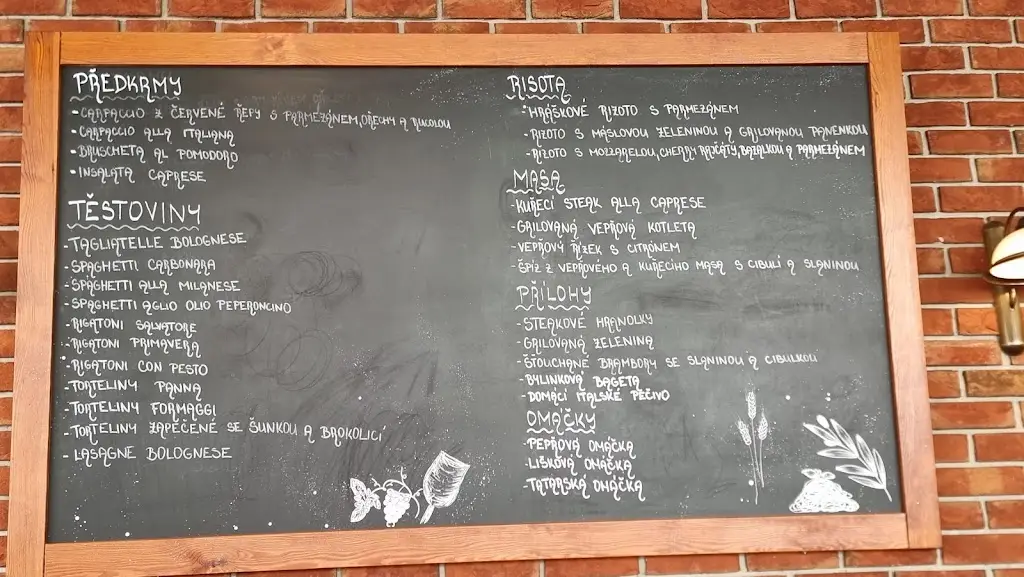 PŘEDKRMY
•CARPACCIO Z ČERVENÉ ŘEPY S PARMEZÁNEM,OŘECHY A RUCOLOU
•CARPACCIO ALLA ITALIANA
•BRUSCHETA AL POMODORO
•INSALATA CAPRESE
TĚSTOVINY
-TAGLIATELLE BOLOGNESE
-SPAGHETTI CARBONARA
-SPAGHETTI ALLA MILANESE
-SPAGHETTI AGLIO OLIO PEPERONCINO
-RIGATONI SALVATORE
-RIGATONI PRIMAVERA
-RIGATONI CON PESTO
-TORTELINY PANNA
-TORTELINY FORMAGGI
-TORTELINY ZAPEČENÉ SE ŠUNKOU A BROKOLICÍ
-LASAGNE BOLOGNESE
RISOTA
-HRÁŠKOVÉ RIZOTO S PARMEZÁNEM
-RIZOTO S MÁSLOVOU ZELENINOU A GRILOVANOU PANENKOU
-RIZOTO S MOZZARELOU,CHERRY RAJČATY,BAZALKOU A PARMEZÁNEM
MASA
-KUŘECÍ STEAK ALLA CAPRESE
-GRILOVANÁ VEPŘOVÁ KOTLETA
-VEPŘOVÝ ŘÍZEK S CITRÓNEM
-ŠPÍZ Z VEPŘOVÉHO A KUŘECÍHO MASA S CIBULÍ A SLANINOU
PŘÍLOHY
-STEAKOVÉ HRANOLKY
-GRILOVANÁ ZELENINA
-ŠŤOUCHANÉ BRAMBORY SE SLANINOU A CIBULKOU
-BYLINKOVÁ BAGETA
-DOMÁCÍ ITALSKÉ PEČIVO
OMÁČKY
-PEPŘOVÁ OMÁČKA
-LIŠKOVÁ OMÁČKA
-TATARSKÁ OMÁČKA